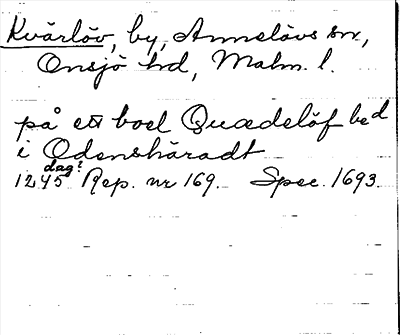 Kvärlöv, by, Annelövs sn,
Onsjö hd, Malm. l.
på ett boel Quædelöf bed
i Odenshäradt
dag?
1245 Rep. nr 169. Spec. 1693.